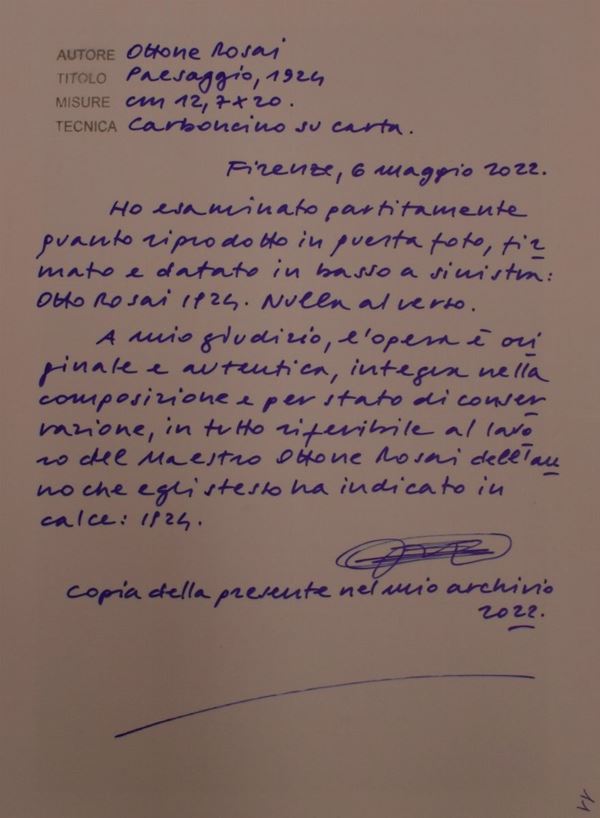 AUTORE Ottone Rosai
TITOLO Paesaggio, 1924
MISURE cm 12,7x20.
TECNICA Carboncino su carta.
Firenze, 6 maggio 2022.
Ho esaminato partitamente
quanto riprodotto in questa foto, fir
mato e datato in basso a sinistra:
Otto Rosai 1924. Nulla al verso.
A mio giudizio, l'opera è ori
ginale e autentica, integra nella
composizione e per stato di conser
vazione, in tutto riferibile al lavo
ro del Maestro Ottone Rosai dell'an
no che egli stesso ha indicato in
calce: 1924.
Copia della presente nel mio archivio
2022.